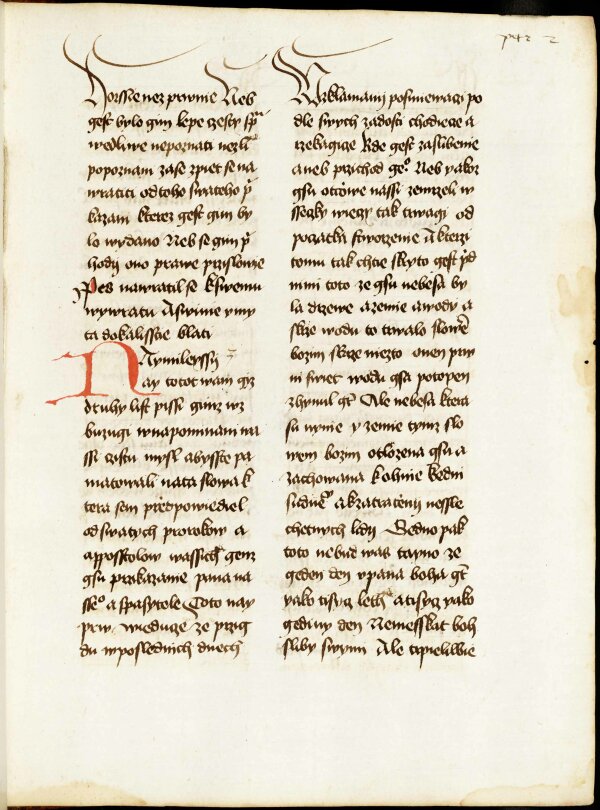 petr 2
horssie nez prwnie Neb
gest bylo gim lepe czesty sp̃
wedliwe nepoznati nezli
popoznani zase zpiet se na
wratiti od toho swateho p̃
kazani kterez gest gim by
lo wydano Neb se gim p̃
hodij ono prawe przislowie
Pes nawratil se k swemu
wywratu A swinie vmy
ta do kalisscie blati
Naymileyssij 3
ay totot wam giz
druhy list pissi gimz wz
buzugi w napomenuti wa
ssi czistu mysl abysste pa
matowali na ta slowa k
tera sem przedpowiediel
od swatych prorokow a
appostolow wassich genz
gsu przikazanie pana na
sseº a spasytele Toto nay
prw wieduze ze przig
du w poslednich dnech
W zklamanij posmiewagi po
dle swych zadosti chodiece a
rzekagice kde gest zaslibenie
aneb przichod geº Neb yakoz
gsu otcowe nassi zemrzeli w
sseczky wieczy tak trwagi od
poczatka stworzenie A kterzi
tomu tak chtie skryto gest p̃d
nimi toto ze gsu nebesa by
la drzewe a zemie a wody a
skrze wodu to trwalo slowẽ
bozim skrze niezto onen prw
ni swiet wodu gsa potopen
zhynul gt̃ Ale nebesa ktera
su nynie y zemie tymz slo
wem bozim otlozena gsu a
zachowana k ohnie ke dni
sudneº a k zatracenij nessle
chetnych lidij Gedno pak
toto nebud was tayno ze
geden den v pana boha gt̃
yako tisycz leth a tisycz yako
gediny den Nemesskat boh
sliby swymi Ale trpieliwie